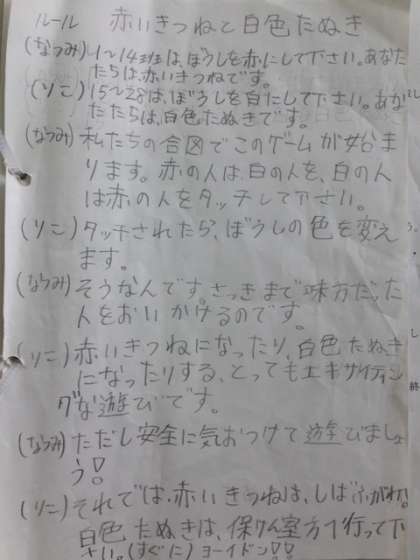 ルール 赤いきつねと白色たぬき
(なつみ)1〜14班は、ぼうしを赤にして下さい。あなた
たちは、赤いきつねです。
(りこ)15〜28は、ぼうしを白にして下さい。あな
たたちは、白色たぬきです。
(なつみ)私たちの合図でこのゲームが始ま
ります。赤の人は、白の人を、白の人
は赤の人をタッチして下さい。
(りこ)タッチされたら、ぼうしの色を変え
ます。
(なつみ)そうなんです。さっきまで味方だった
人をおいかけるのです。
(りこ)赤いきつねになったり、白色たぬき
になったりする、とってもエキサイティン
グな遊びです。
(なつみ)ただし安全に気おつけて遊びましょ
う!
(りこ)それでは、赤いきつねは、しばふがわ、
白色たぬきは、保けん室方へ行って下
さい。(すぐに)ヨーイドン!!